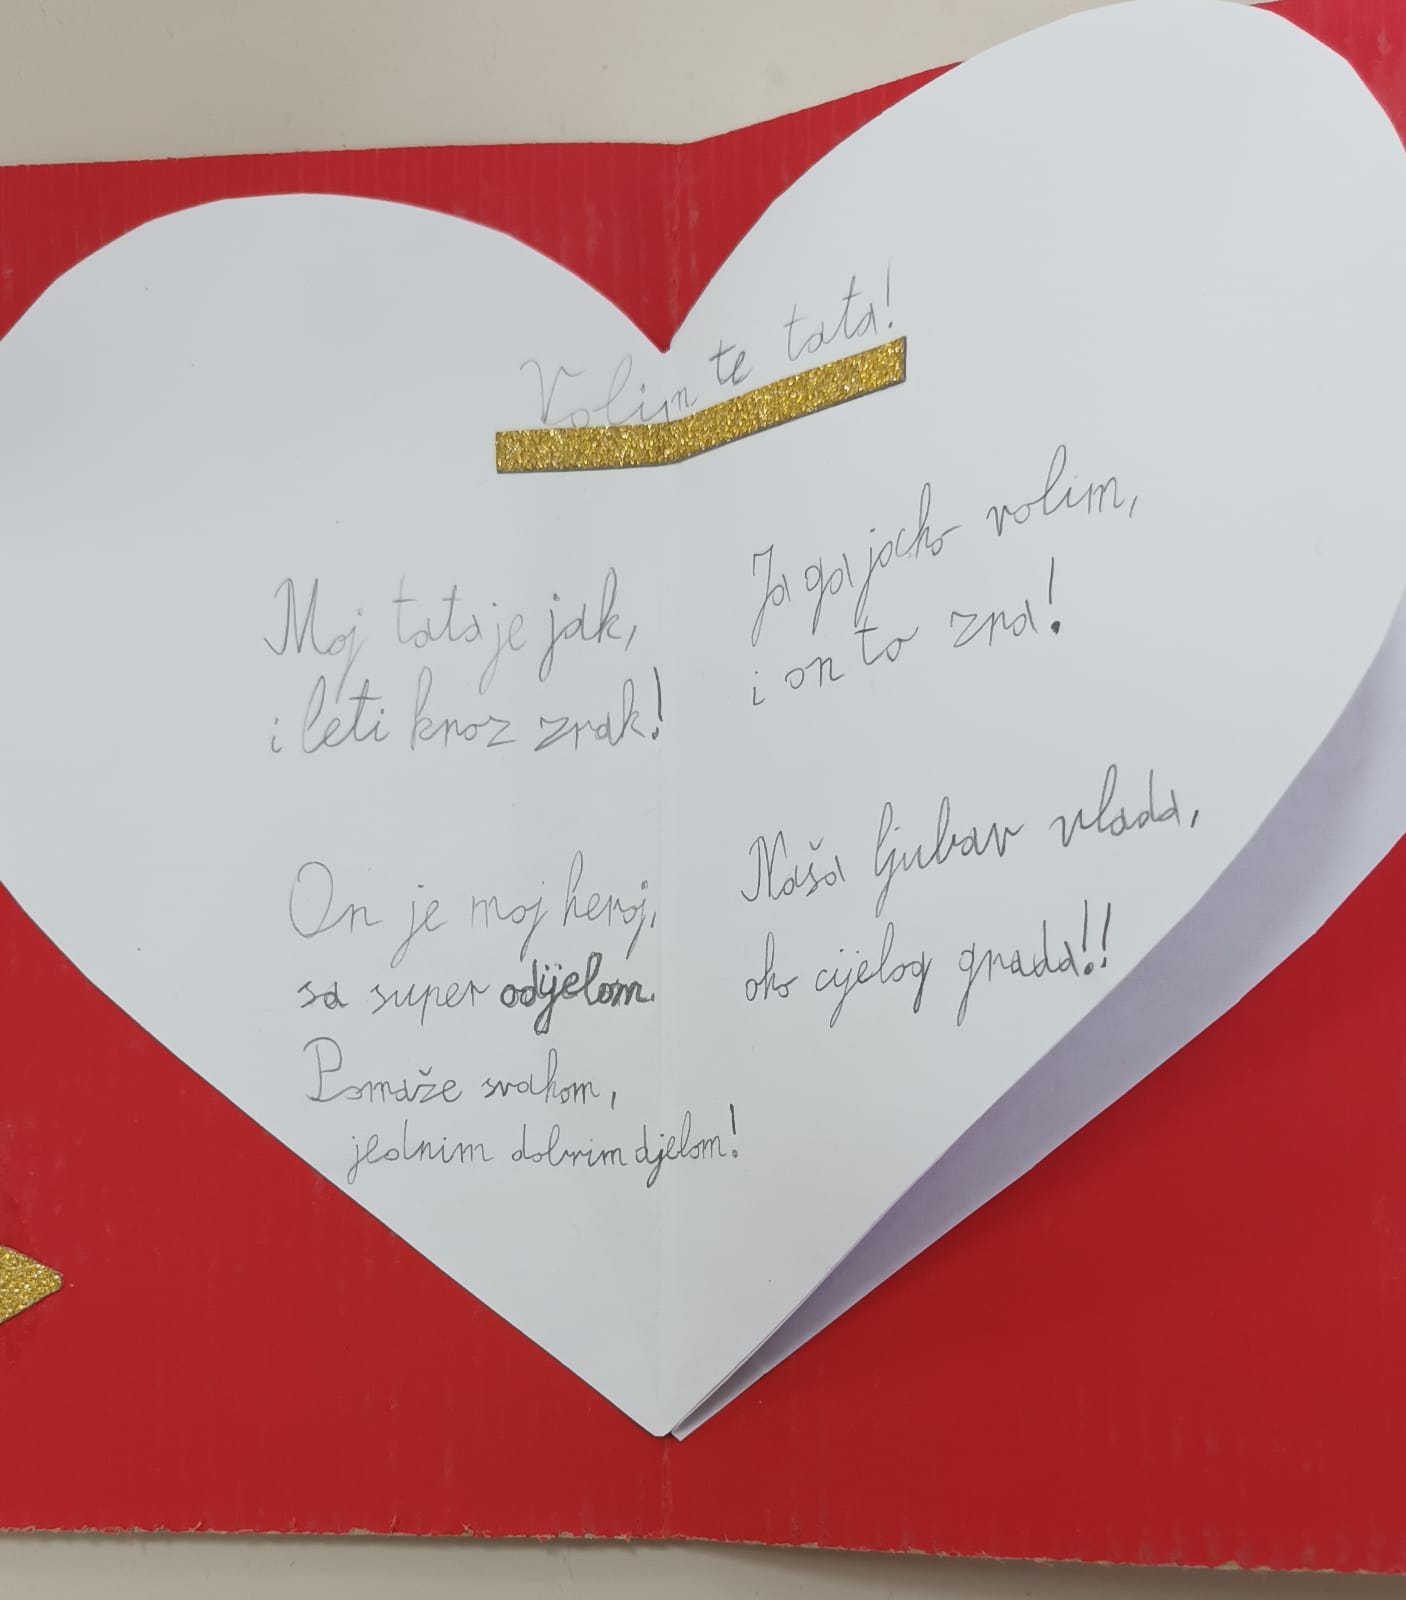 Volim te tata!
Moj tata je jak,
i leti kroz zrak!
On je moj heroj,
sa super odijelom.
Pomaže svakom,
jednim dobrim djelom!
Ja ga jako volim,
i on to zna!
Naša ljubav vlada,
oko cijelog grada!!